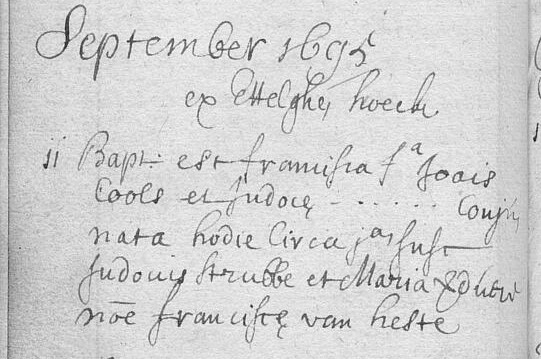 September 1695
ex Ettelghe, hoeck
11 Bapt: est francisca f^a Joais
Cools et Judocę - . . . . . . Conjū,
nata hodie Circa j^am susc
Judocus Strubbe et Maria
noē franciscę van heste